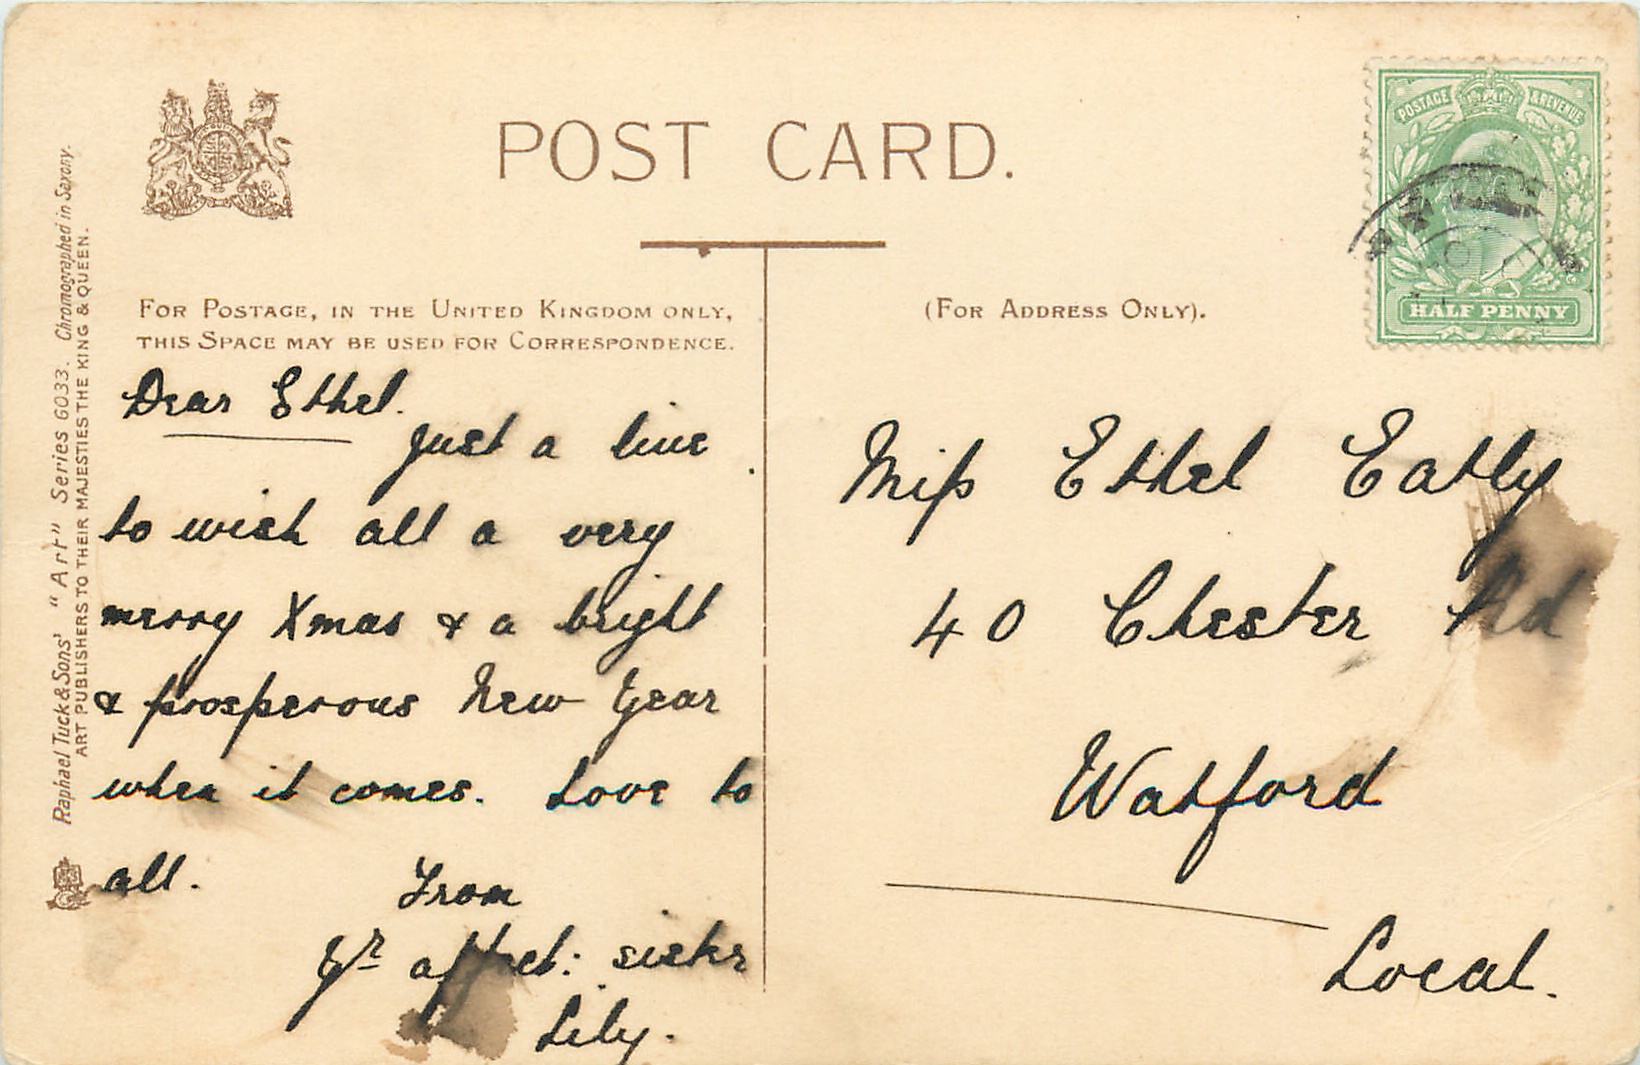 POST CARD.
POSTAGE & REVENUE
HALF PENNY
FOR POSTAGE, IN THE UNITED KINGDOM ONLY,
THIS SPACE MAY BE USED FOR CORRESPONDENCE.
(FOR ADDRESS ONLY).
Raphael Tuck & Sons' "Art" Series 6033. Chromographed in Saxony.
ART PUBLISHERS TO THEIR MAJESTIES THE KING & QUEEN.
Dear Ethel.
Just a line
to wish all a very
merry Xmas & a bright
& prosperous New Year
when it comes. Love to
all. From
Yr affect: sister
Lily.
Miss Ethel Eatly
40 Chester Rd
Watford
Local.